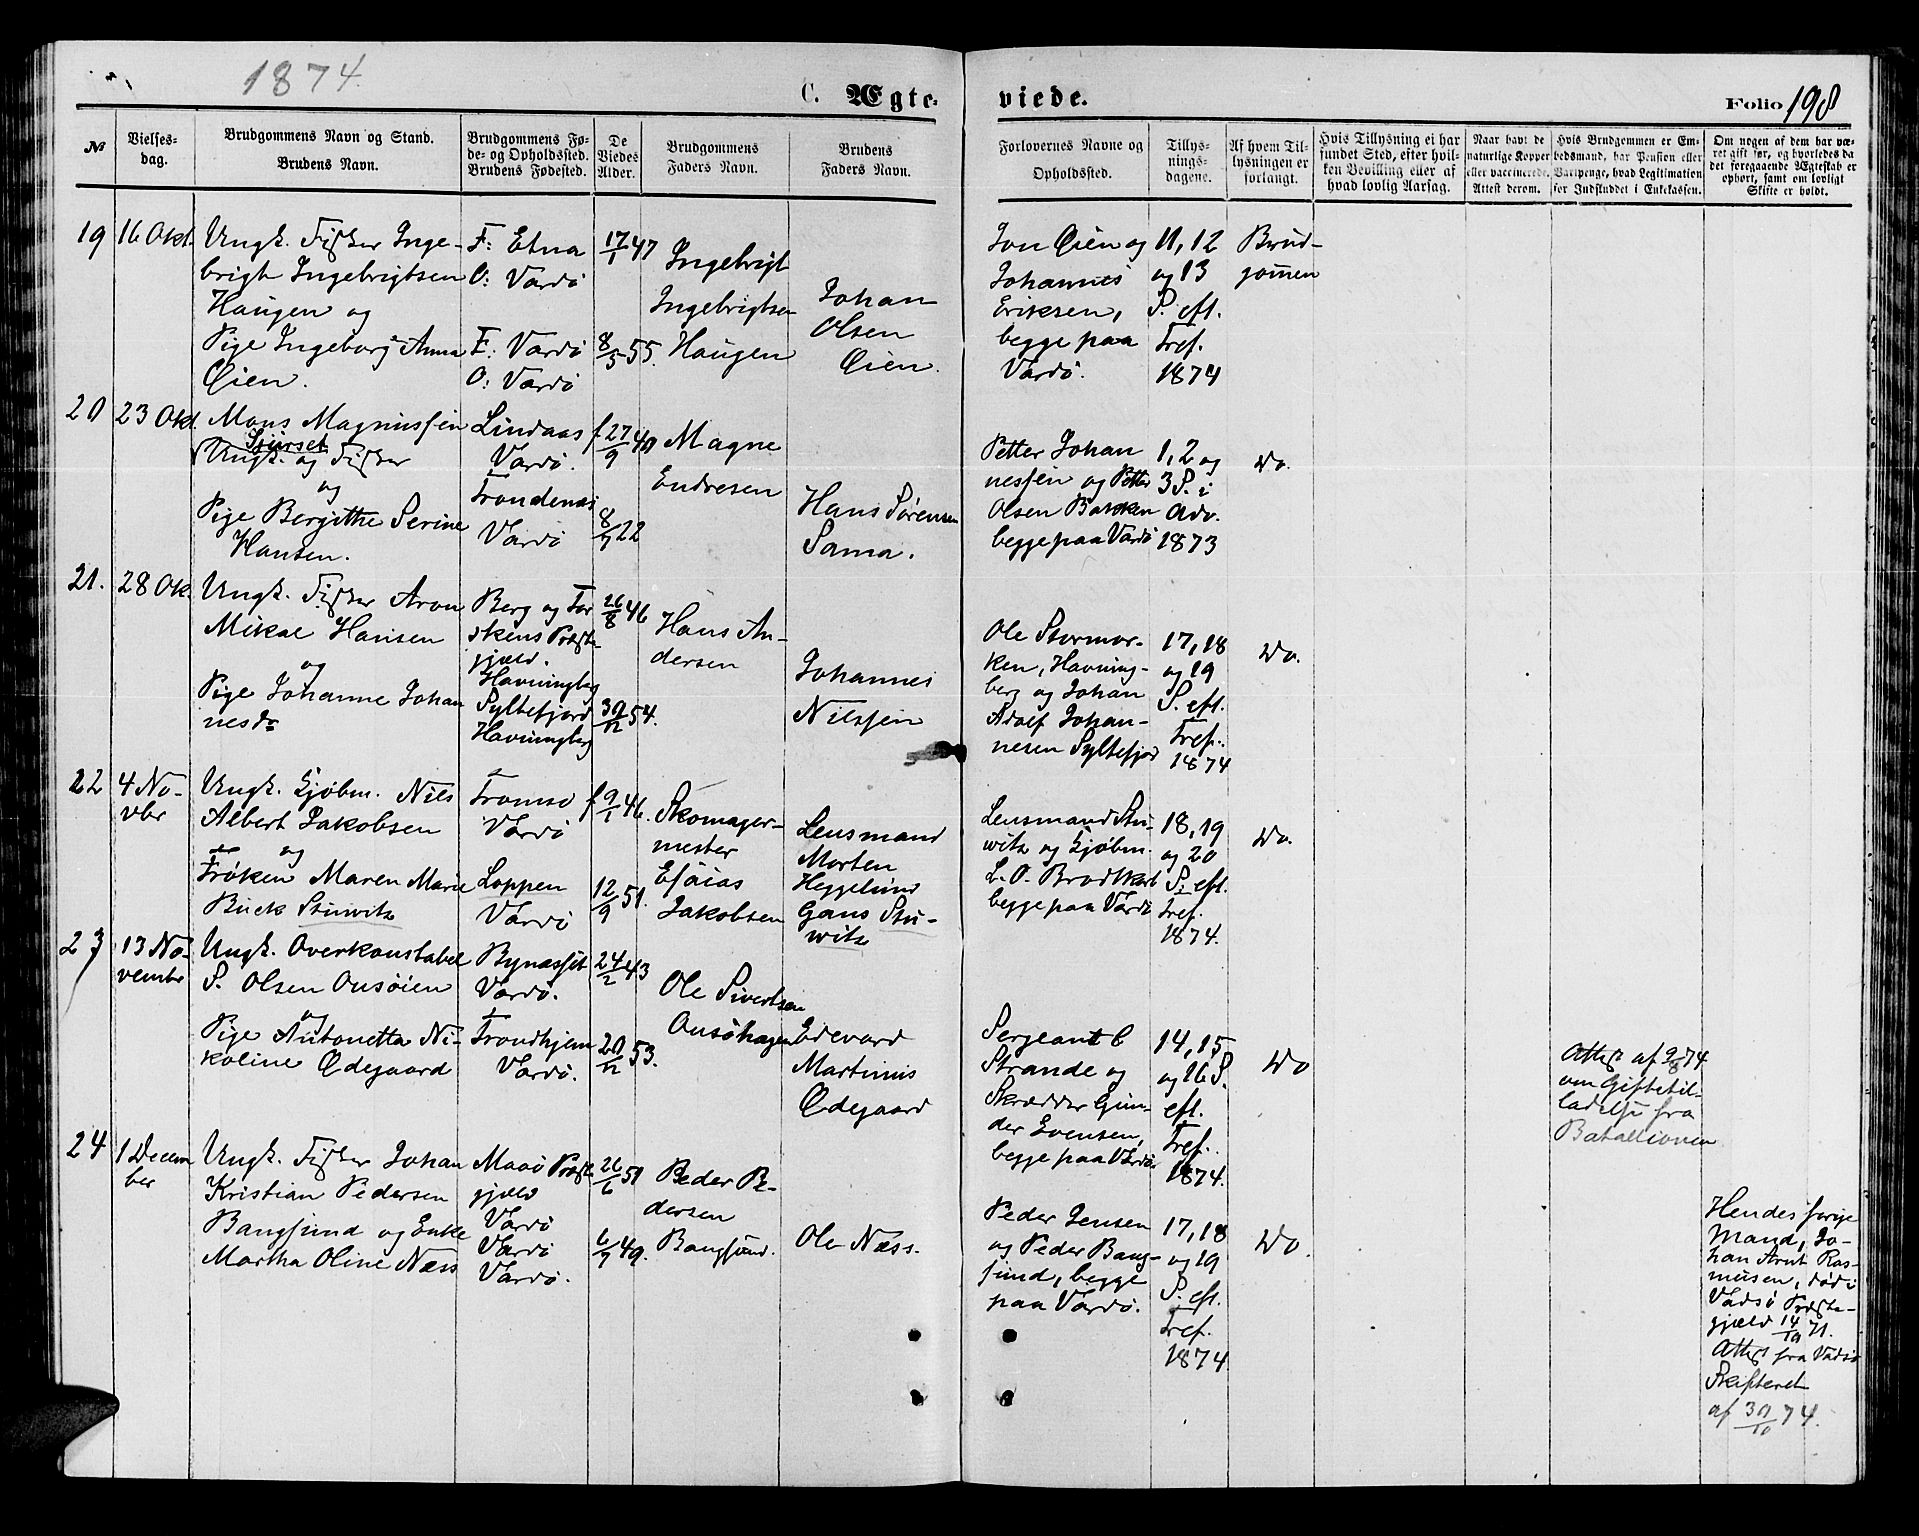 1874.
C. Ægte-
viede.
Folio 198
No
Vielses-
dag.
Brudgommens Navn og Stand.
Brudens Navn.
Brudgommens Fø-
de- og Opholdssted.
Brudens Fødested.
De
Viedes
Alder.
Brudgommens
Faders Navn.
Brudens
Faders Navn.
Forlovernes Navne og
Opholdssted.
Tillys-
nings-
dagene.
Af hvem Til-
lysningen er
forlangt.
Hvis Tillysning ei har
fundet Sted, efter hvil-
ken Bevilling eller af
hvad lovlig Aarsag.
Naar havt de
naturlige Kopper
eller vaccinerede.
Attest derom.
Hvis Brudgommen er Em-
bedsmand, har Pension eller
Vartpenge, hvad Legitimation
for Indskuddet i Enkekassen.
Om nogen af dem har væ-
ret gift før, og hvorledes da
det foregaaende Ægteskab er
ophørt, samt om lovligt
Skifte er holdt.
19
16 Okt.
Ungk. Fisker Inge-
brigt Ingebrigtsen
Haugen og
Pige Ingeborg Anna
Øien.
F: Etna
O: Vardø
F: Vardø
O: Vardø
17/1 47
8/5 55.
Ingebrigt
Ingebrigtsen
Haugen
Johan
Olsen
Øien.
Jon Øien og
Johannes
Eriksen,
begge paa
Vardø.
11, 12
og 13
S. eft.
Tref.
1874
Brud-
gommen
20
23 Okt.
Mons Magnussen
Sjurset
Ungk. og Fisker
og
Pige Bergithe Serine
Hansen.
Lindaas
Vardø.
Trondenæs
Vardø
f 27/9 40
8/7 22
Magne
Endresen
Hans Sørensen
Sama.
Petter Johan
nessen og Petter
Olsen Bakken
begge paa Vardø
1, 2 og
3 S. i
Adv.
1873
Do.
21.
28 Ok.
Ungk. Fisker Aron
Mikal Hansen
og
Pige Johanne Johan
nesdr
Berg og Tor
skens Præste-
gjæld.
Havningberg
Syltefjord
Havningberg
26/8 46
30/12 54.
Hans An-
dersen
Johannes
Nilssen
Ole Stormor-
ken, Havning-
berg og Johan
Adolf Johan-
nesen Syltefjor
17, 18
og 19
S. eft.
Tref.
1874
Do.
22
4 No-
vbr
Ungk. Kjøbm. Nils
Albert Jakobsen
og
Frøken Maren Marie
Buck Stuwitz
Tromsø
Vardø
Loppen
Vardø
f 9/1 46.
12/9 51.
Skomager-
mester
Esaias
Jakobsen
Lensmand
Morten
Heggelund
Gans Stu-
witz
Lensmand Stu-
witz og Kjøbm.
L. O. Brodtkorb
begge paa Vardø
18, 19
og 20
S. eft.
Tref.
1874.
Do.
23
13 No-
vembr
Ungk. Overkonstabel
S. Olsen Onsøien
og
Pige Antonetta Ni-
koline Ødegaard
Bynæsset
Vardø.
Trondhjem
Vardø.
24/2 43
20/12 53.
Ole Sivertsen
Onsøhagen
Edevard
Martinus
Ødegaard
Sergeant C
Strande og
Skrædder Gun-
der Evensen,
begge paa Vardø.
14, 15
og 16 S.
eft.
Tref.
1874.
Do
Attest af 9/8 74
om Giftetil-
ladelse fra
Bataillonen
24
1 Decem
ber
Ungk. Fisker Johan
Kristian Pedersen
Bangsund og Enke
Martha Oline Næss
Maasø Præste
gjæld
Vardø
Vardø
Vardø.
26/6 51
6/7 49.
Peder Pe-
dersen
Bangsund.
Ole Næss.
Peder Jensen
og Peder Bang-
sund, begge
paa Vardø.
17, 18
og 19
S. eft.
Tref.
1874
Do.
Hendes forige
Mand, Jo-
han Arnt Ras-
musen, død i
Vadsø Præste-
gjæld 14/10 71.
Attest fra Vadsø
Skifteret
af 30/10 74.